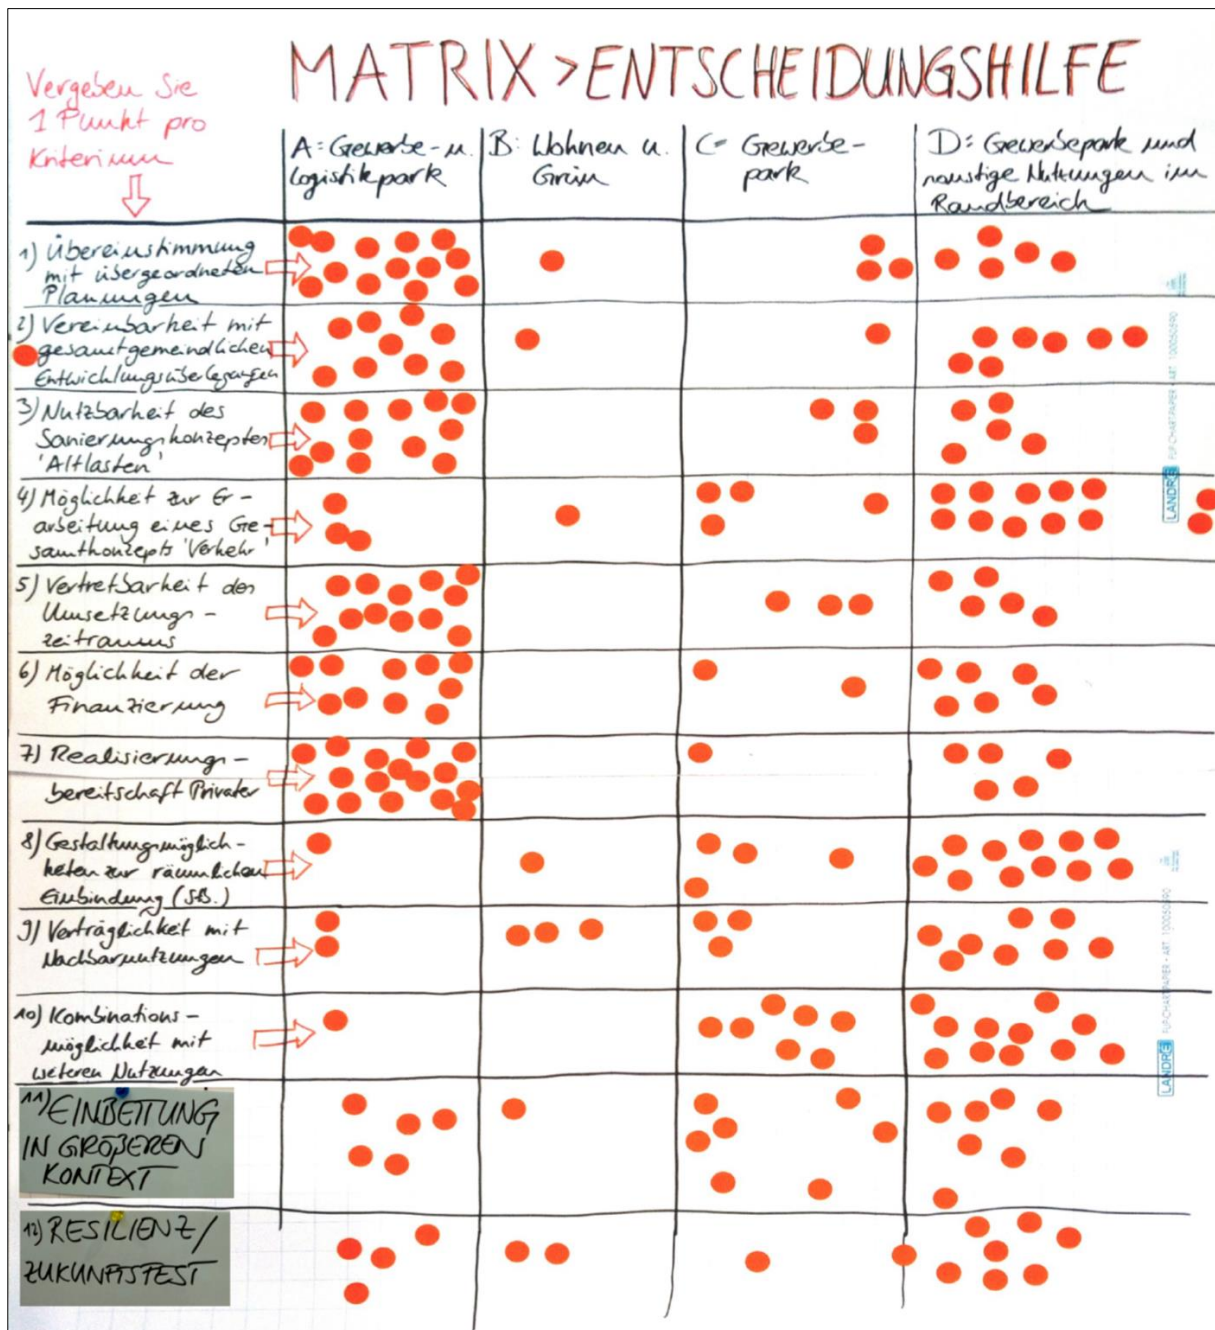 MATRIX > ENTSCHEIDUNGSHILFE
Vergeben Sie
1 Punkt pro
Kriterium
A: Gewerbe- u.
Logistikpark
B: Wohnen u.
Grün
C= Gewerbe-
park
D: Gewerbepark und
sonstige Nutzungen im
Randbereich
1) Übereinstimmung
mit übergeordneten
Planungen
2) Vereinbarkeit mit
gesamtgemeindlichen
Entwicklungsüberlegungen
3) Nutzbarkeit des
Sanierungskonzeptes
'Altlasten'
4) Möglichkeit zur Er-
arbeitung eines Ge-
samtkonzepts 'Verkehr'
5) Vertretbarkeit des
Umsetzungs-
zeitraums
6) Möglichkeit der
Finanzierung
7) Realisierungs-
bereitschaft Privater
8) Gestaltungsmöglich-
keiten zur räumlichen
Einbindung (StB.)
9) Verträglichkeit mit
Nachbarnutzungen
10) Kombinations-
möglichkeit mit
weiteren Nutzungen
11) EINBETTUNG
IN GRÖßEREN
KONTEXT
12) RESILIENZ/
ZUKUNFTSFEST
LANDRÉ FLIP-CHARTPAPIER - ART. 100050590
LANDRÉ FLIP-CHARTPAPIER - ART. 100050590